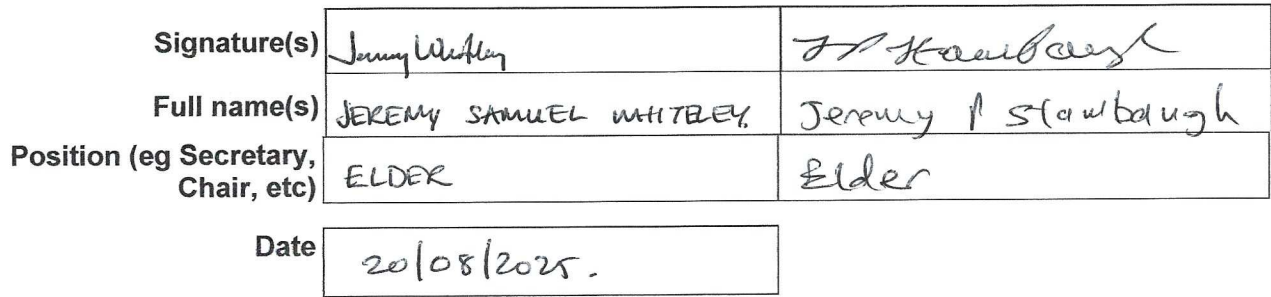 Signature(s) Jeremy Whiteley JP Stambaugh
Full name(s) JEREMY SAMUEL WHITELEY. Jeremy P Stambaugh
Position (eg Secretary,
Chair, etc) ELDER Elder
Date 20/08/2025.